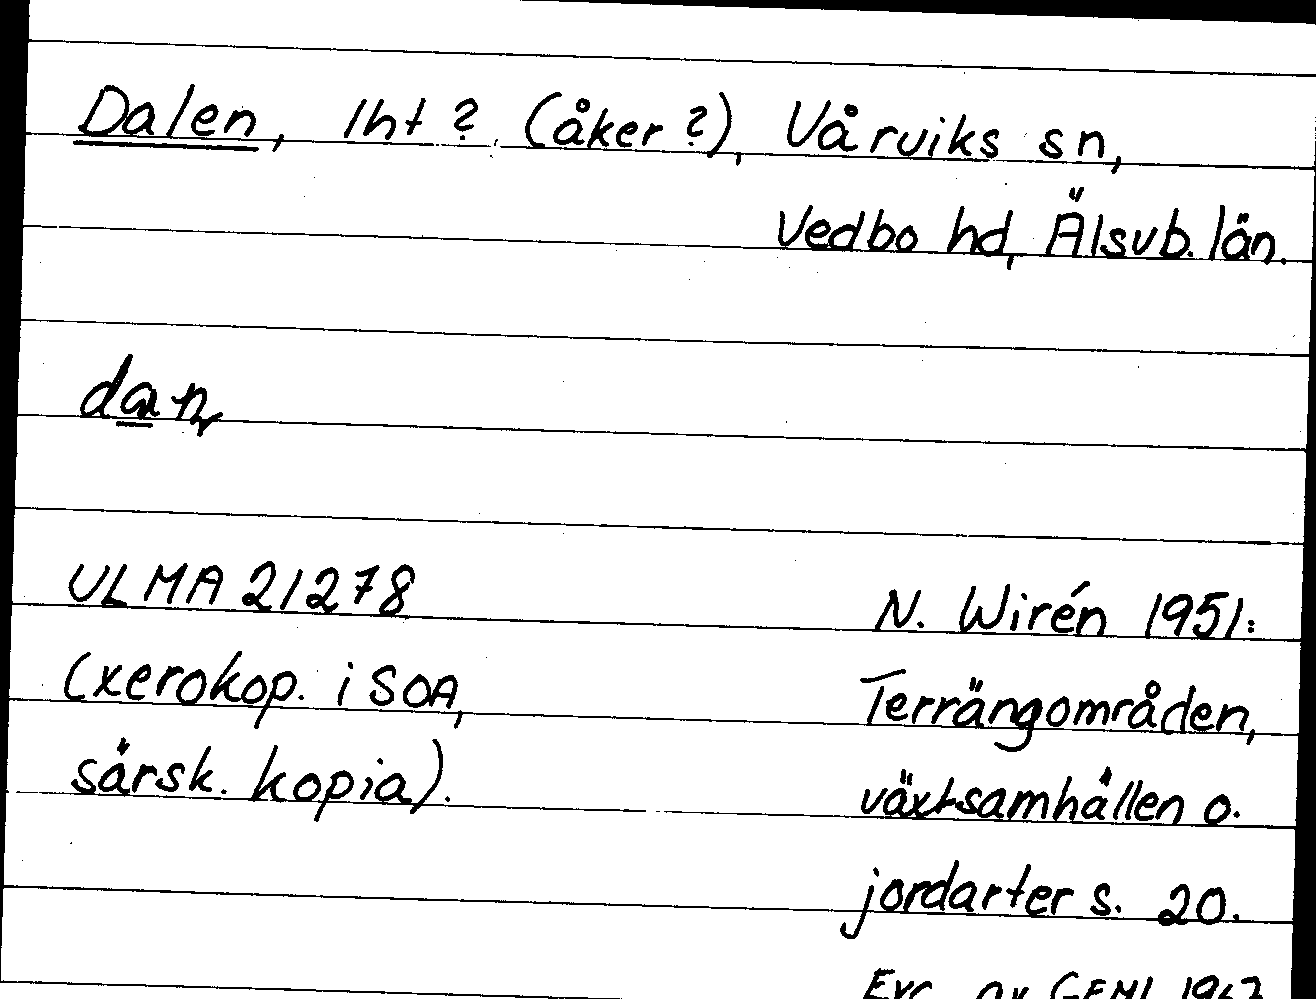 Dalen, lht? (åker?), Vårviks sn,
Vedbo hd, Älsvb. län.
dan
ULMA 21278
(xerokop. i SOA,
särsk. kopia).
N. Wirén 1951:
Terrängområden,
växtsamhällen o.
jordarter s. 20.
Exc. av